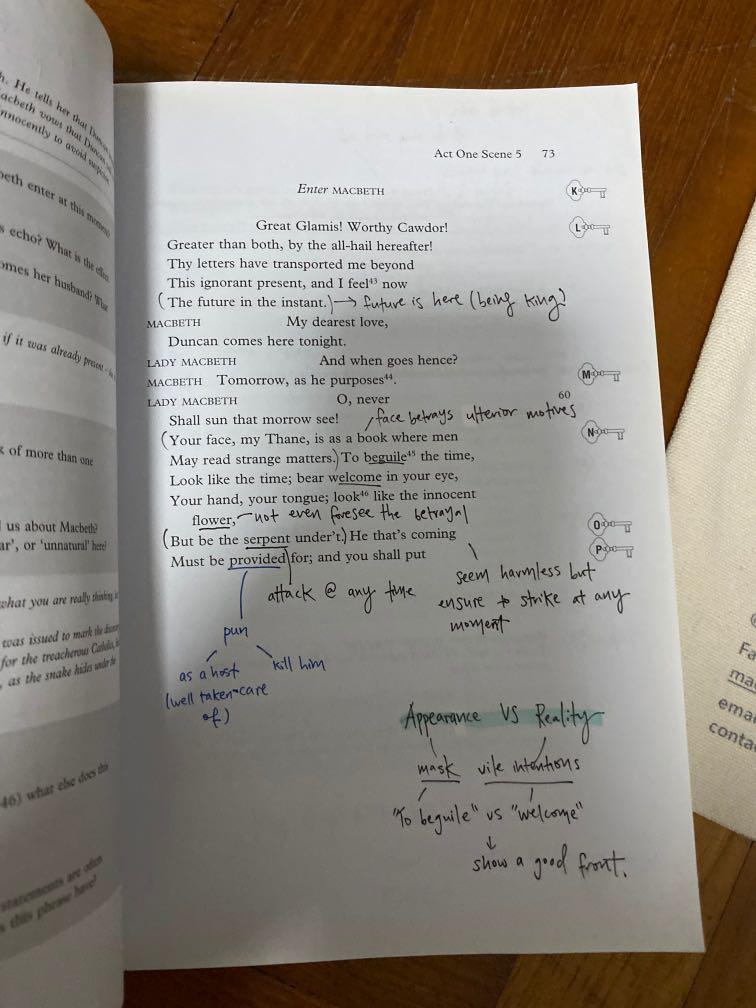 h. He tells her that Duncan
acbeth vows that Duncan
nnocently to avoid
beth enter at this moment?
s echo? What is the
omes her husband? What
if it was already present
k of more than one
us about Macbeth?
ar', or 'unnatural' here?
what you are really thinking
was issued to mark the
for the treacherous Catholic,
, as the snake hides under the
46) what else does this
statements are often
s this phrase have?
Act One Scene 5 73
Enter MACBETH
K
Great Glamis! Worthy Cawdor!
L
Greater than both, by the all-hail hereafter!
Thy letters have transported me beyond
This ignorant present, and I feel⁴³ now
(The future in the instant.) → future is here (being king)
MACBETH My dearest love,
Duncan comes here tonight.
LADY MACBETH And when goes hence?
M
MACBETH Tomorrow, as he purposes⁴⁴.
LADY MACBETH O, never 60
Shall sun that morrow see! face betrays ulterior motives
N
(Your face, my Thane, is as a book where men
May read strange matters.) To beguile⁴⁵ the time,
Look like the time; bear welcome in your eye,
Your hand, your tongue; look⁴⁶ like the innocent
flower, not even foresee the betrayal
O
(But be the serpent under't.) He that's coming
P
Must be provided for; and you shall put
attack @ any time
seem harmless but
ensure to strike at any
moment
pun
as a host
(well taken care
of)
kill him
Appearance VS Reality
mask vile intentions
"To beguile" vs "welcome"
↓
show a good front.
Fa
ma
emai
conta